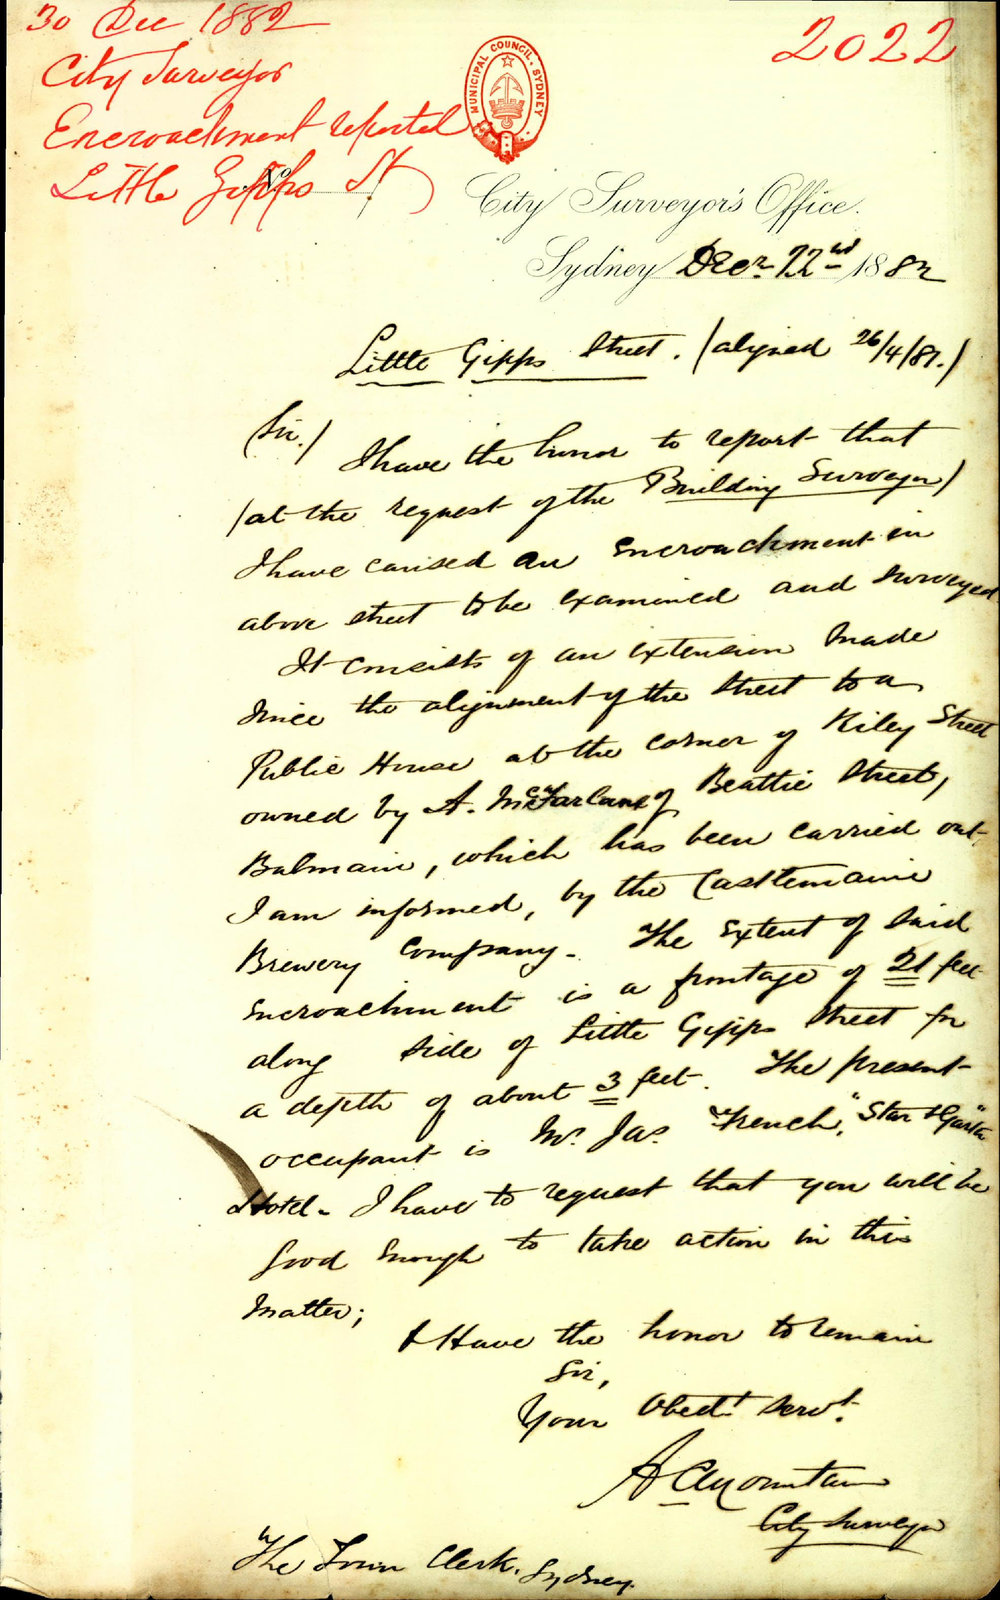 30 Dec 1882
City Surveyor
Encroachment reported
Little Gipps St
2022
MUNICIPAL COUNCIL. SYDNEY.
No
City Surveyor's Office.
Sydney Decr. 22nd 1882
Little Gipps Street. (aligned 26/4/81.)
(Sir.)
I have the honor to report that
(at the request of the Building Surveyor)
I have caused an encroachment in
above street to be examined and surveyed
It consists of an extension made
since the alignment of the street to a
Public House at the corner of Kiley Street
owned by A. McFarlane of Beattie Street,
Balmain, which has been carried out,
I am informed, by the Castlemaine
Brewery Company. The extent of said
encroachment is a frontage of 21 feet
along side of Little Gipps Street for
a depth of about 3 feet. The present
occupant is Mr. Jas. French, "Star & Garter"
Hotel. I have to request that you will be
good enough to take action in this
matter;
I Have the honor to remain
Sir,
Your Obedt. Servt.
A C Mountain
City Surveyor
The Town Clerk. Sydney.